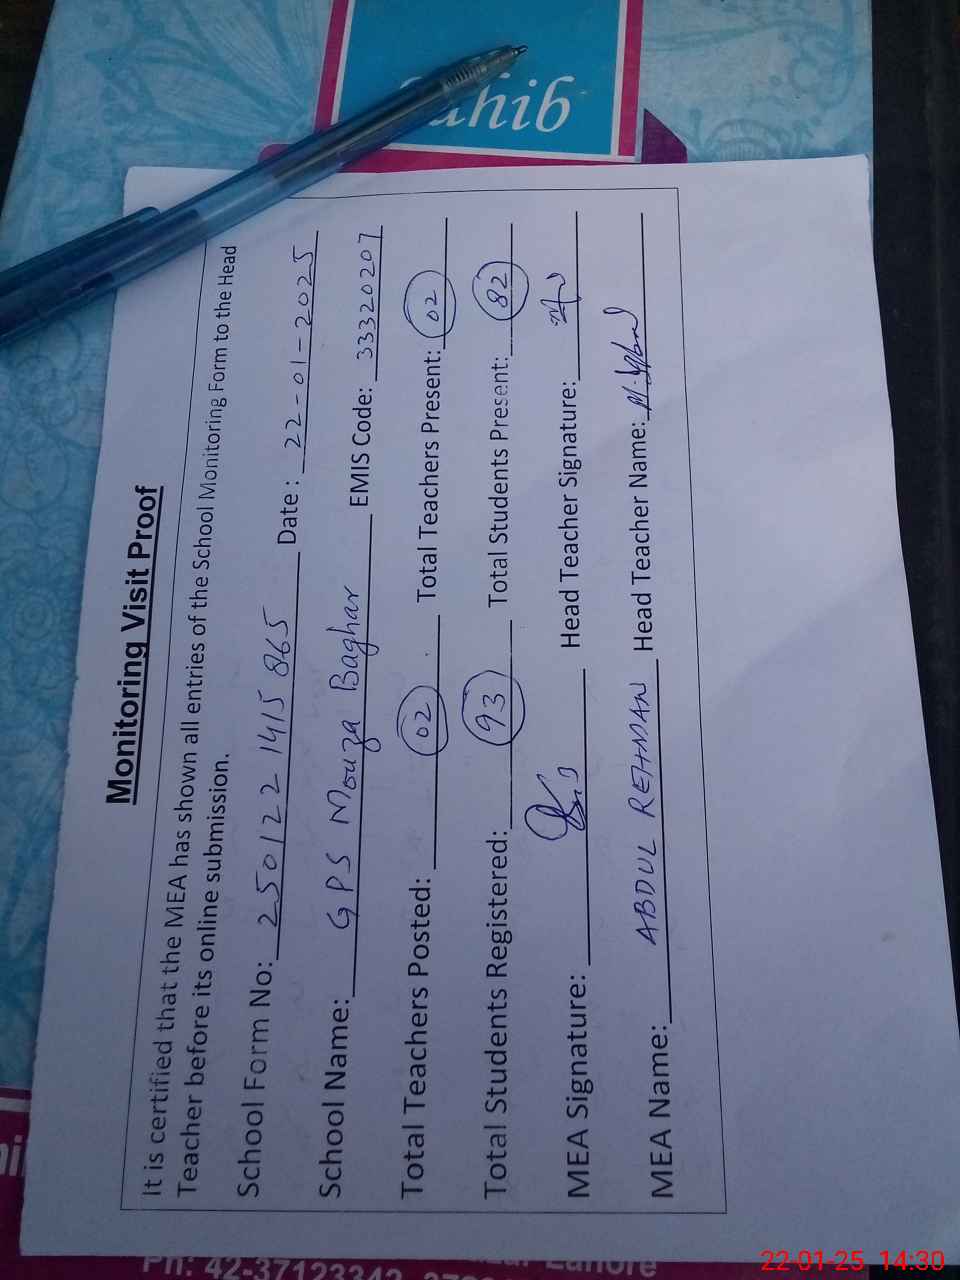 Monitoring Visit Proof
It is certified that the MEA has shown all entries of the School Monitoring Form to the Head
Teacher before its online submission.
School Form No: 250122 1415 865 Date: 22-01-2025
School Name: GPS Mouza Baghar EMIS Code: 33320207
Total Teachers Posted: 02 Total Teachers Present: 02
Total Students Registered: 93 Total Students Present: 82
MEA Signature: Head Teacher Signature:
MEA Name: ABDUL REHMAN Head Teacher Name: M. Iqbal
hib
Ph: 42-37123342
Lahore
22-01-25 14:30